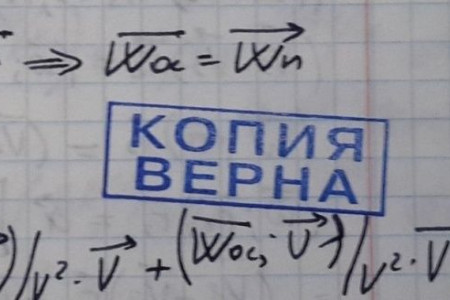 ⇒ Wα = Wn
КОПИЯ
ВЕРНА
)/V²·V + (Woc; V)/V²·V